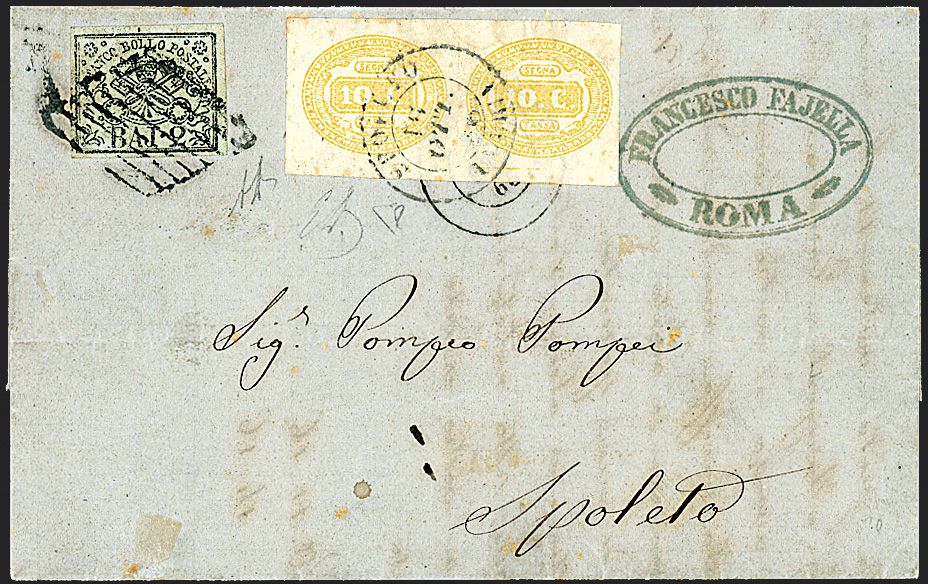 FRANCO BOLLO POSTALE
BAI. 2
SEGNA
10. C.
TASSA
SEGNA
10. C.
TASSA
FRANCESCO FAJELLA
ROMA
Sig.r Pompeo Pompei
Spoleto